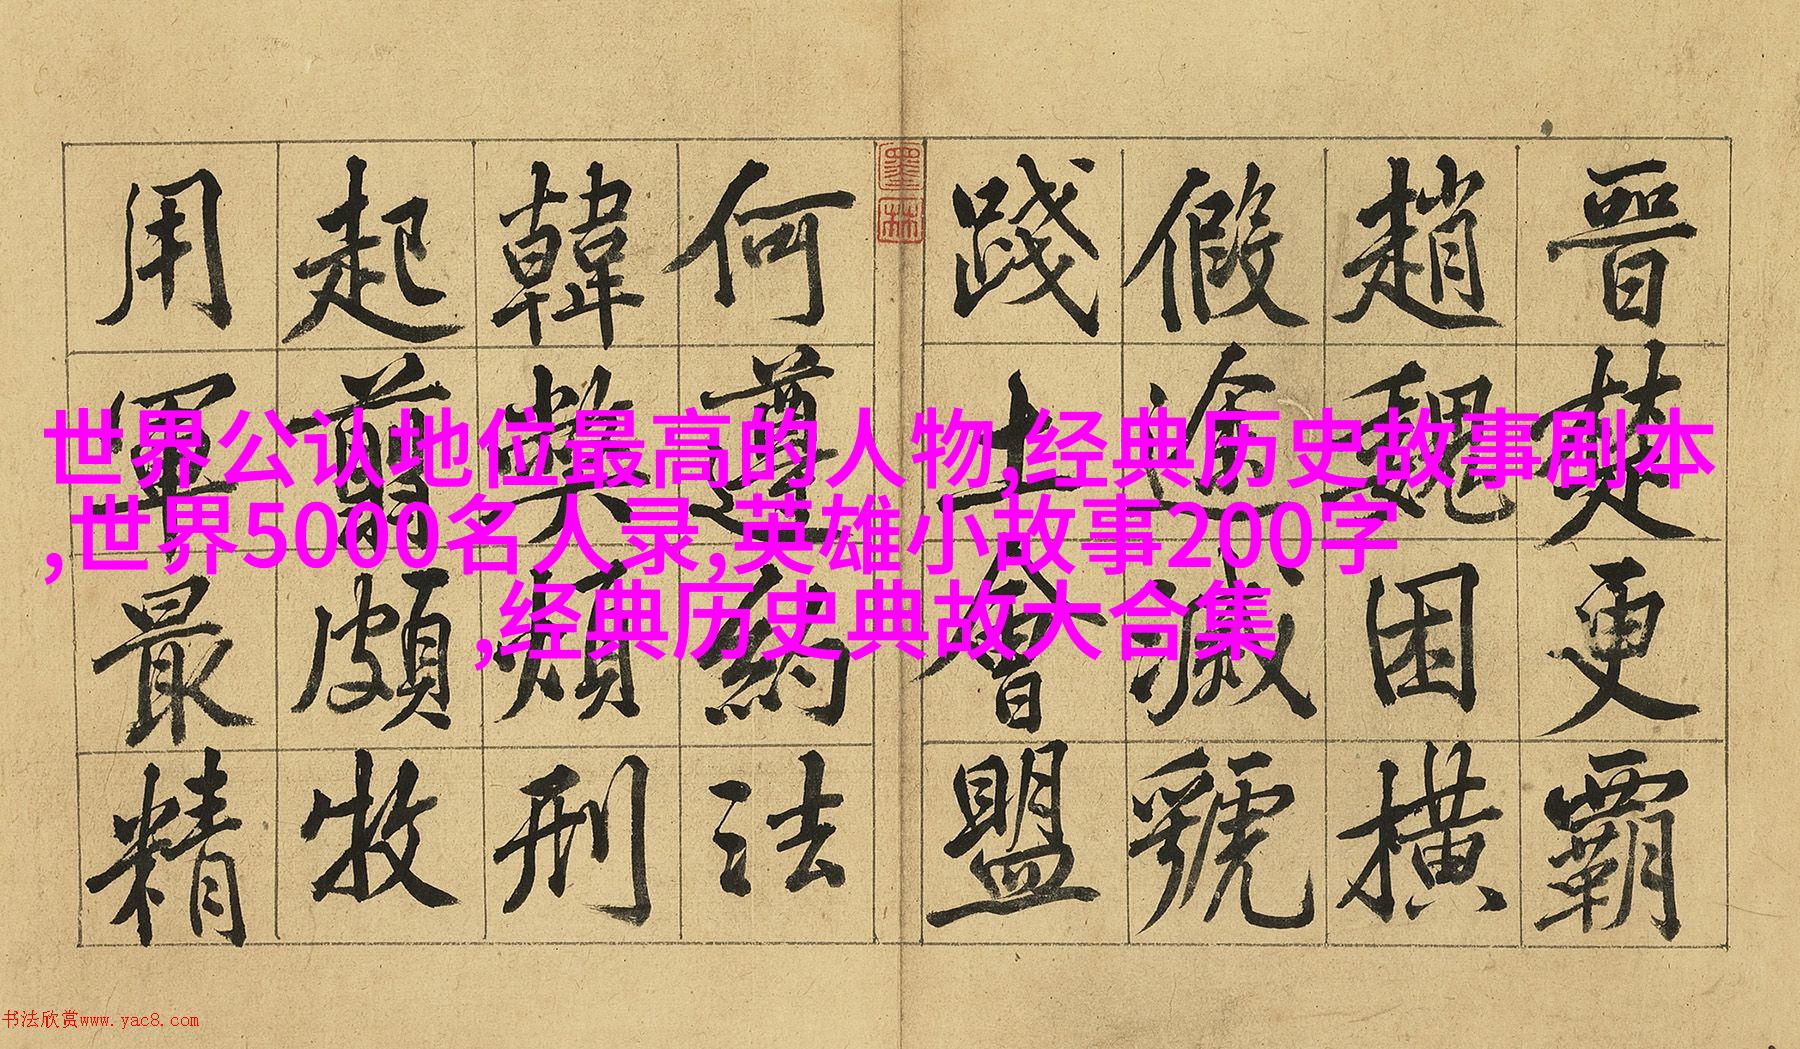 晉楚更霸
趙魏困橫
假途滅虢
踐土會盟
何遵約法
韓弊煩刑
起翦頗牧
用軍最精
墨林
世界公认地位最高的人物,经典历史故事剧本
,世界5000名人录,英雄小故事200字
,经典历史典故大合集
书法欣赏www.yac8.com